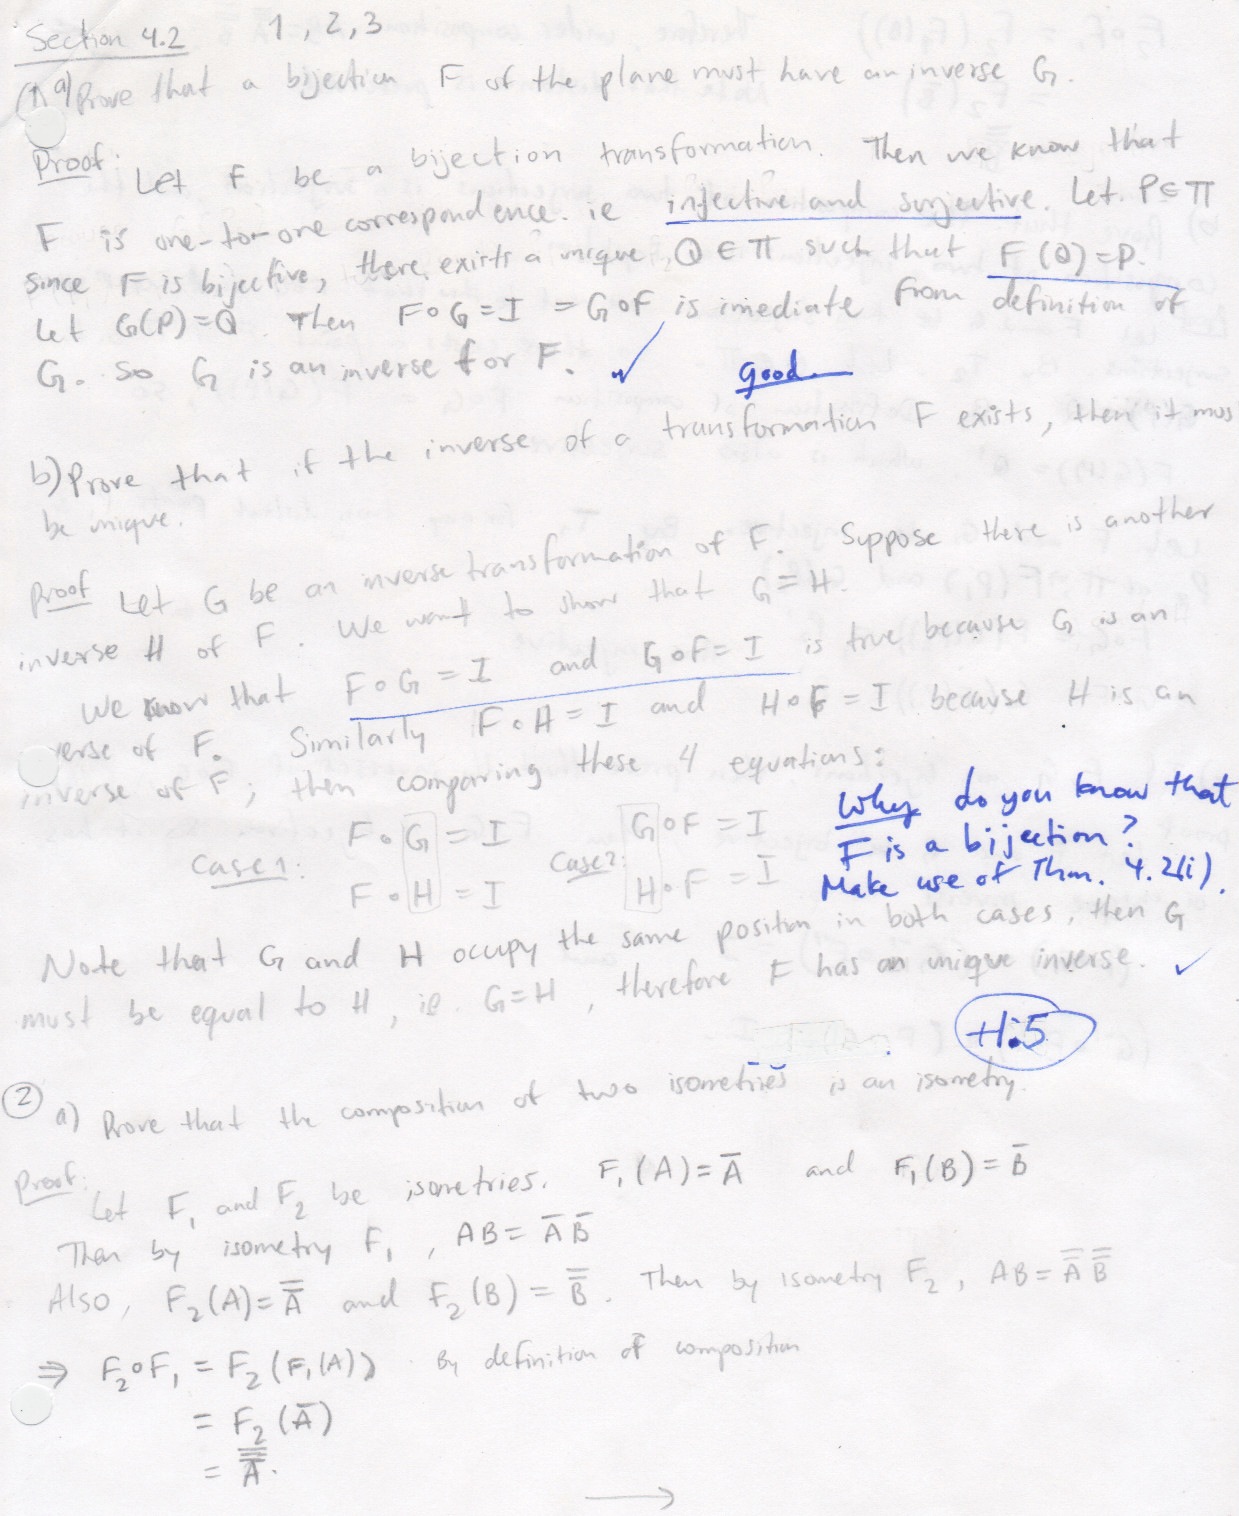 Section 4.2 1, 2, 3
(1) a) Prove that a bijection F of the plane must have an inverse G.
Proof: Let F be a bijection transformation. Then we know that
F is one-to-one correspondence. ie injective and surjective. Let P∈π
since F is bijective, there exists a unique Q ∈ π such that F(Q)=P.
Let G(P)=Q. Then F∘G=I =G∘F is imediate from definition of
G. So G is an inverse for F. ✓
good
b) Prove that if the inverse of a transformation F exists, then it mus
be unique.
Proof Let G be an inverse transformation of F. Suppose there is another
inverse H of F. We want to show that G=H.
We know that F∘G=I and G∘F=I is true because G is an
verse of F. Similarly F∘H=I and H∘F=I because H is an
inverse of F; then comparing these 4 equations:
Case 1: F∘G=I
F∘H=I
Case 2: G∘F=I
H∘F=I
Why do you know that
F is a bijection?
Make use of Thm. 4.2(i).
Note that G and H occupy the same position in both cases, then G
must be equal to H, ie. G=H, therefore F has an unique inverse. ✓
② a) Prove that the composition of two isometries is an isometry.
Proof: Let F₁ and F₂ be isometries. F₁(A)=A̅ and F₁(B)=B̅
Then by isometry F₁, AB=A̅B̅
Also, F₂(A)=A̿ and F₂(B)=B̿. Then by isometry F₂, AB=A̿B̿
⇒ F₂∘F₁ = F₂(F₁(A)) By definition of composition
= F₂(A̅)
→